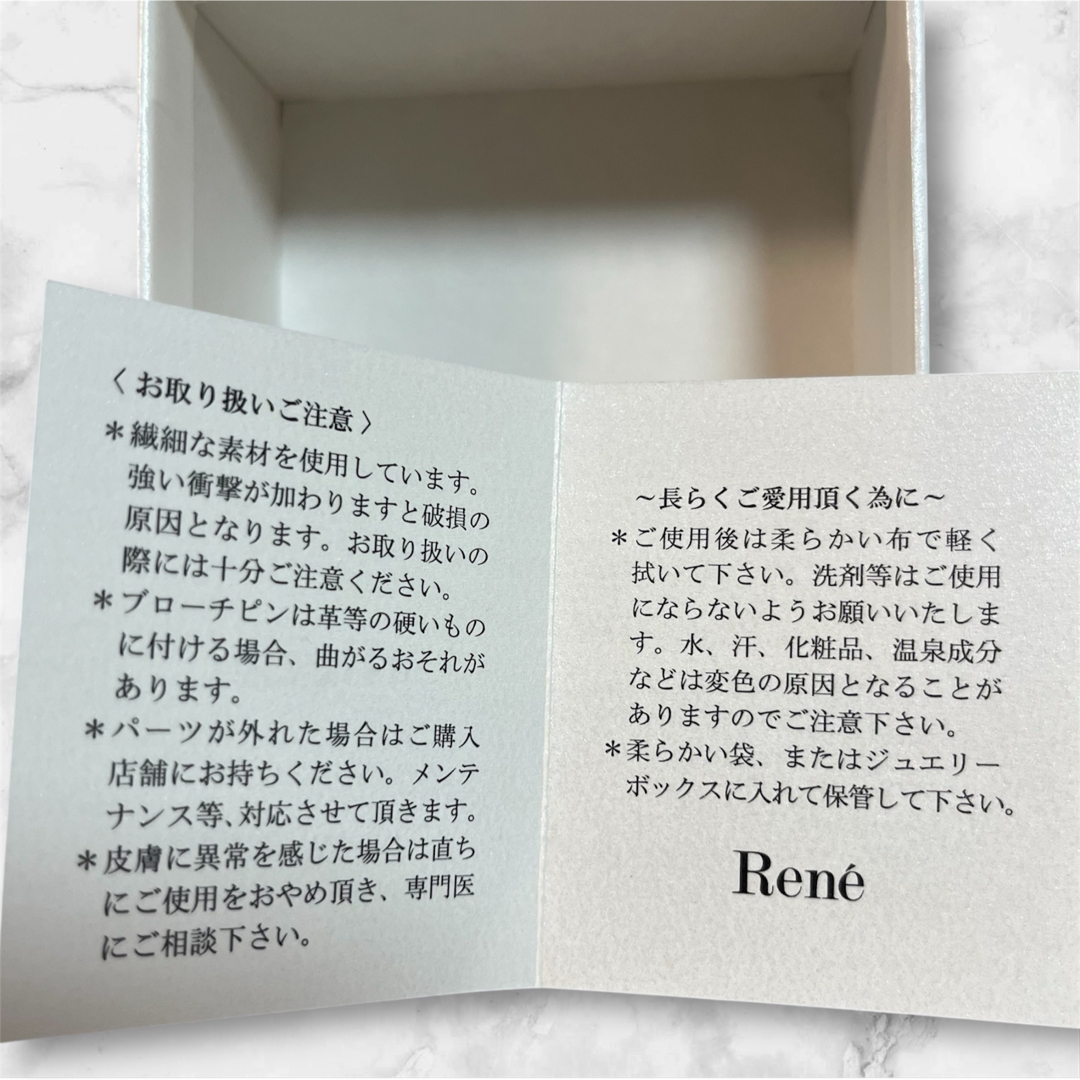 〈お取り扱いご注意〉
＊繊細な素材を使用しています。
強い衝撃が加わりますと破損の
原因となります。お取り扱いの
際には十分ご注意ください。
＊ブローチピンは革等の硬いもの
に付ける場合、曲がるおそれが
あります。
＊パーツが外れた場合はご購入
店舗にお持ちください。メンテ
ナンス等、対応させて頂きます。
＊皮膚に異常を感じた場合は直ち
にご使用をおやめ頂き、専門医
にご相談下さい。
～長らくご愛用頂く為に～
＊ご使用後は柔らかい布で軽く
拭いて下さい。洗剤等はご使用
にならないようお願いいたしま
す。水、汗、化粧品、温泉成分
などは変色の原因となることが
ありますのでご注意下さい。
＊柔らかい袋、またはジュエリー
ボックスに入れて保管して下さい。
René